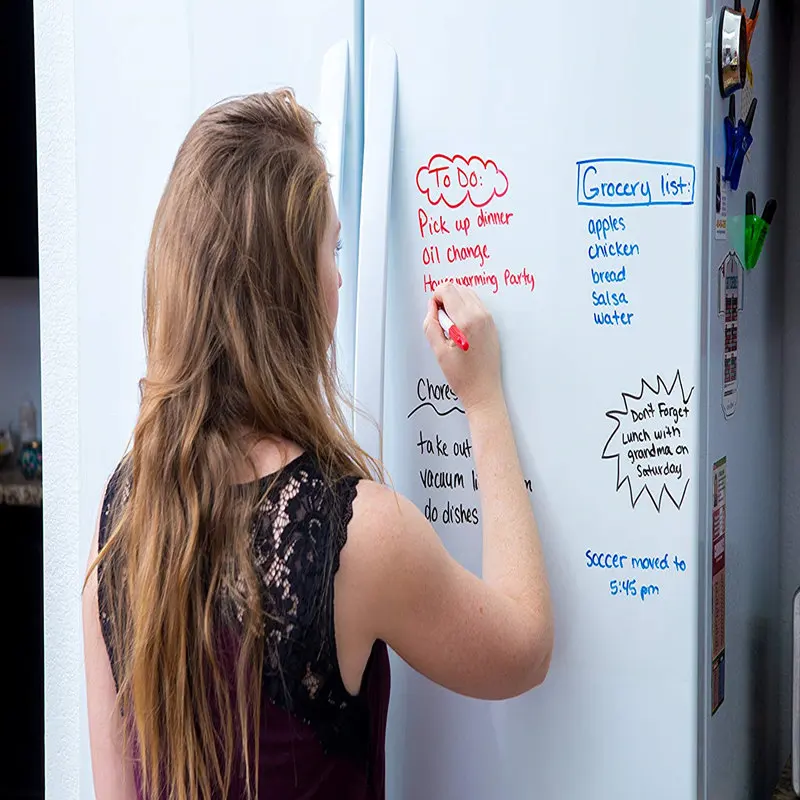 To Do:
Pick up dinner
Oil change
Housewarming Party
Grocery list:
apples
chicken
bread
salsa
water
Chores
take out
vacuum
do dishes
Don't Forget
Lunch with
grandma on
Saturday
Soccer moved to
5:45 pm